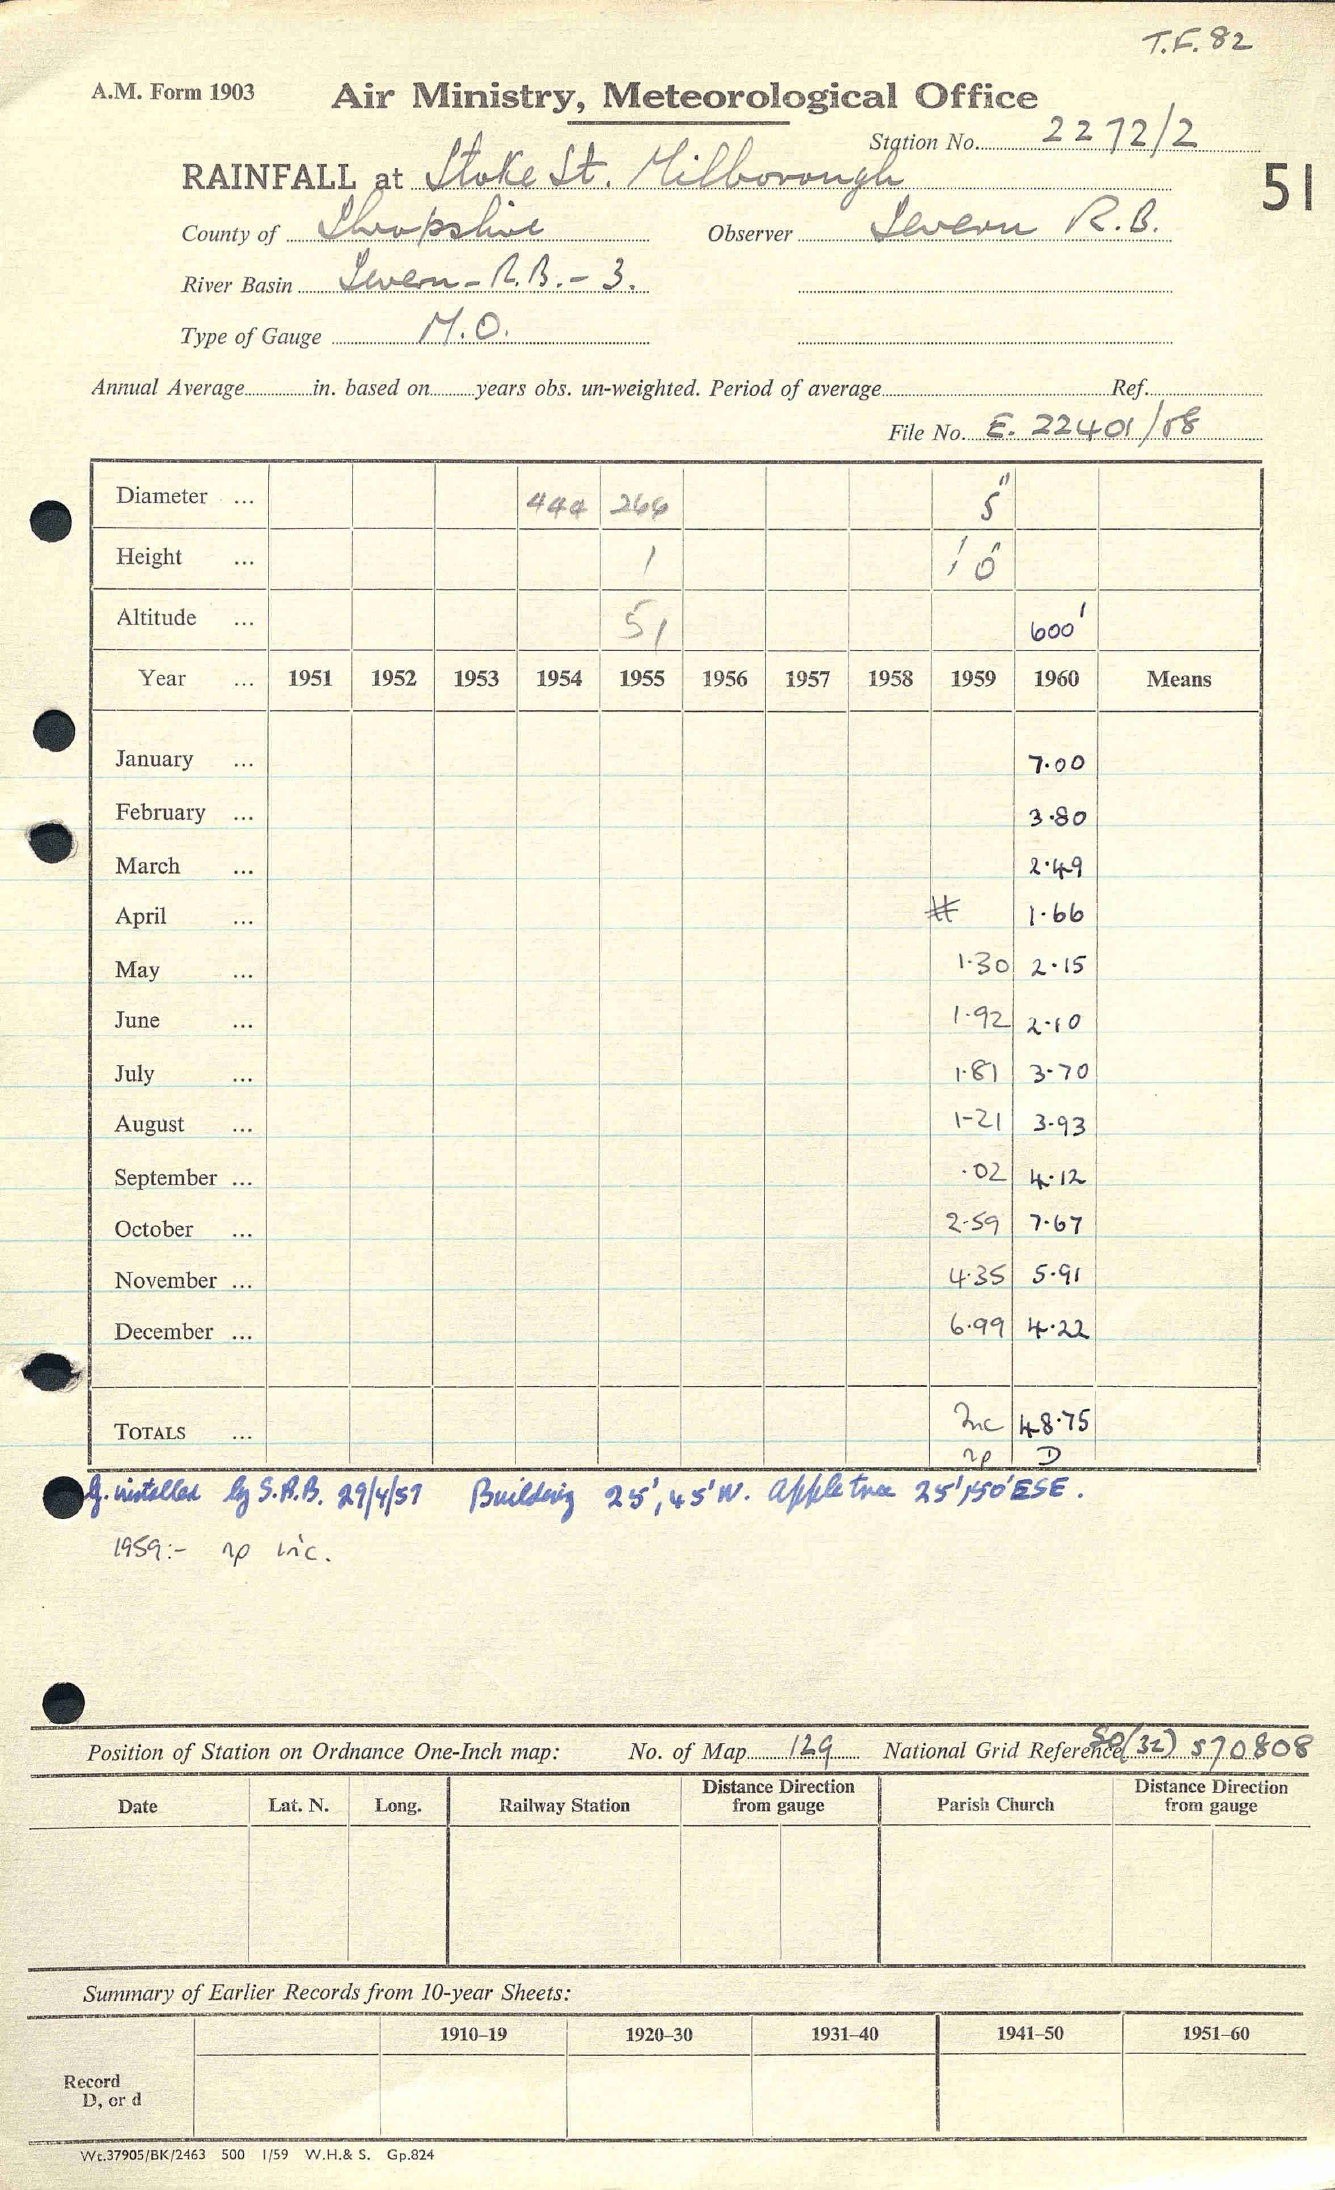 T.F. 82
A.M. Form 1903 Air Ministry, Meteorological Office
Station No. 2272/2
RAINFALL at Stoke St. Milborough
51
County of Shropshire Observer Severn R.B.
River Basin Severn - R.B. - 3.
Type of Gauge M.O.
Annual Average in. based on years obs. un-weighted. Period of average Ref.
File No. E. 22401/58
Diameter ... 444 266 5"
Height ... 1 1' 0"
Altitude ... 51 600'
Year ... 1951 1952 1953 1954 1955 1956 1957 1958 1959 1960 Means
January ... 7.00
February ... 3.80
March ... 2.49
April ... # 1.66
May ... 1.30 2.15
June ... 1.92 2.10
July ... 1.81 3.70
August ... 1-21 3.93
September ... .02 4.12
October ... 2.59 7.67
November ... 4.35 5.91
December ... 6.99 4.22
TOTALS ... Inc 48.75
np D
G. installed by S.R.B. 29/4/59 Building 25', 45' W. Apple tree 25', 50' ESE.
1959:- np inc.
Position of Station on Ordnance One-Inch map: No. of Map 129 National Grid Reference SO(32) 570808
Date Lat. N. Long. Railway Station Distance Direction from gauge Parish Church Distance Direction from gauge
Summary of Earlier Records from 10-year Sheets:
1910–19 1920–30 1931–40 1941–50 1951–60
Record
D, or d
Wt.37905/BK/2463 500 1/59 W.H.& S. Gp.824